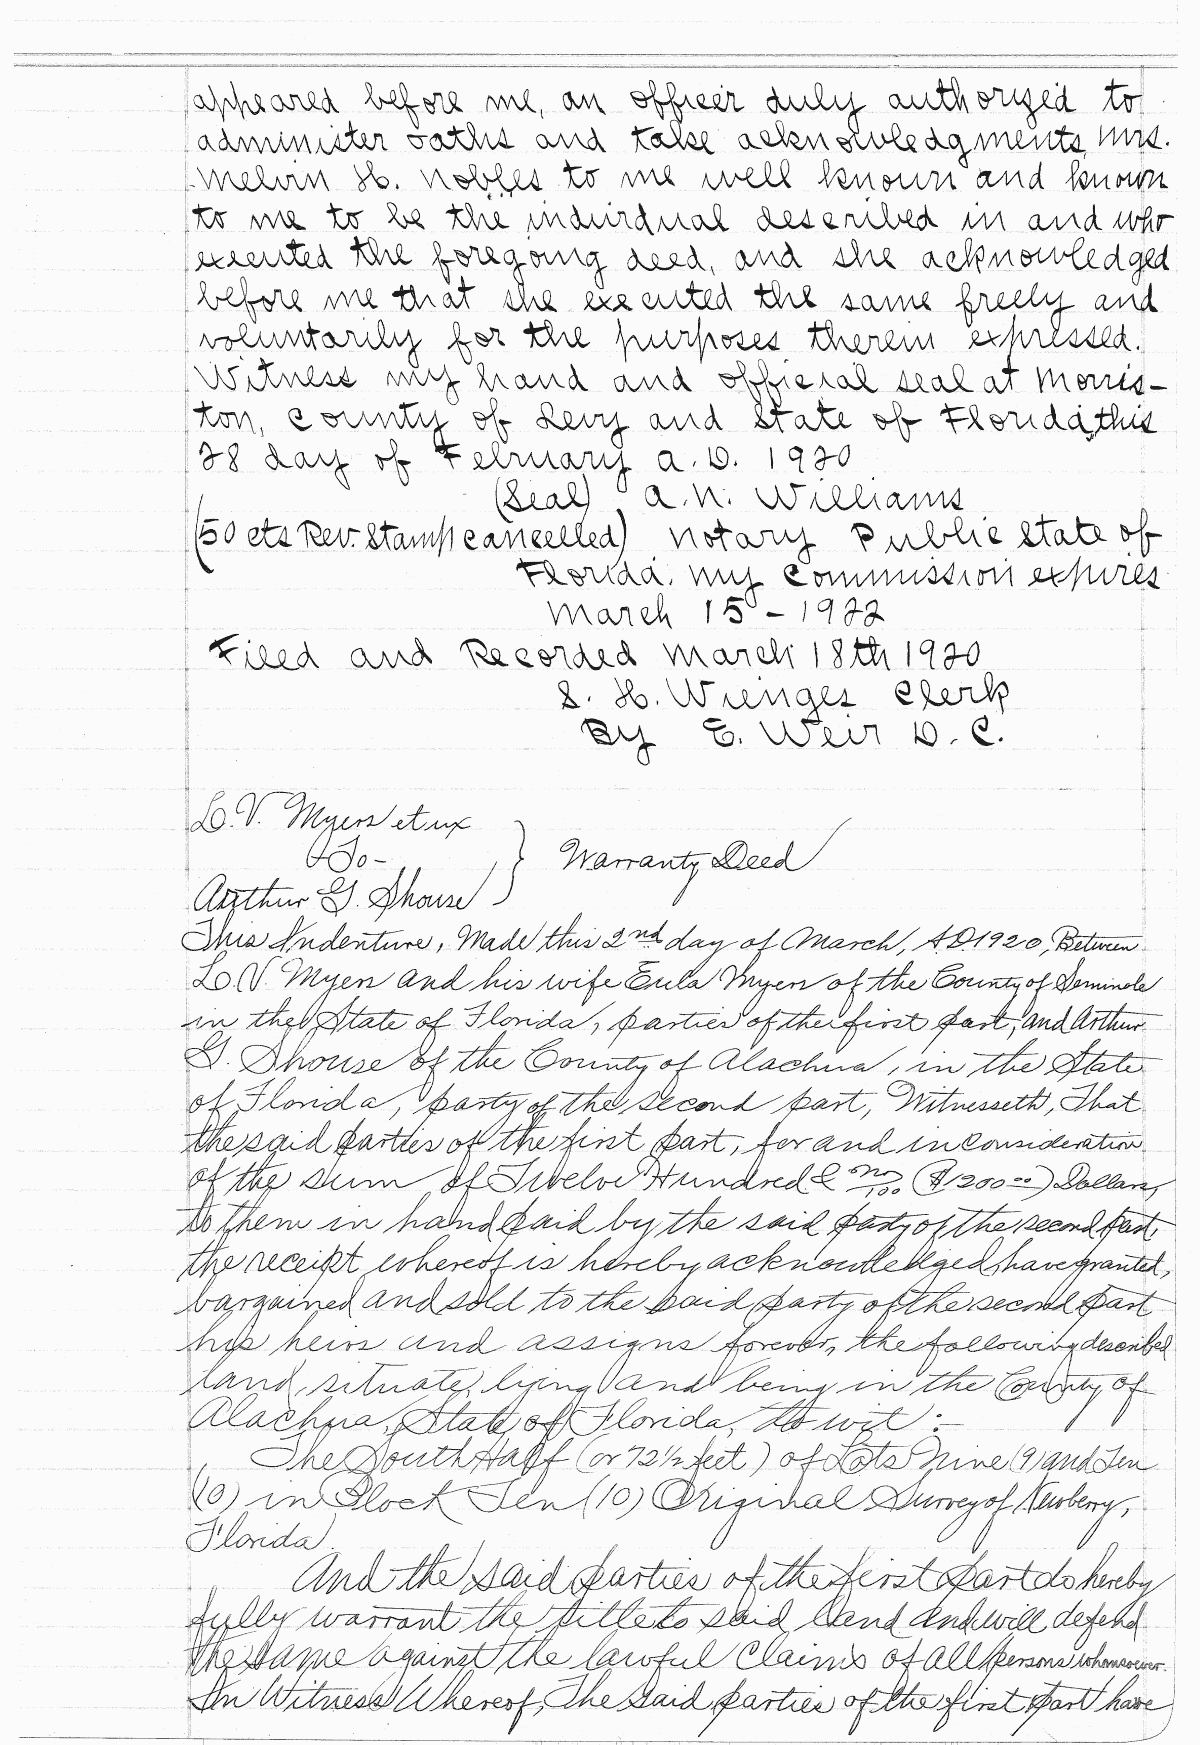 appeared before me, an officer duly authorized to
administer oaths and take acknowledgments, Mrs.
Melvin H. Nobles to me well known and known
to me to be the individual described in and who
executed the foregoing deed, and she acknowledged
before me that she executed the same freely and
voluntarily for the purposes therein expressed.
Witness my hand and official seal at Morris-
ton, County of Levy and State of Florida, this
28 day of February A. D. 1920
(Seal) A. N. Williams
(50 cts Rev. Stamp cancelled) Notary Public State of
Florida. My Commission expires
March 15 - 1922
Filed and Recorded March 18th 1920
S. H. Wienges Clerk
By E. Weir D. C.
L. V. Myers et ux
-To-
Warranty Deed
Arthur G. Shouse
This Indenture, Made this 2nd day of March, A.D. 1920, Between
L. V. Myers and his wife Eula Myers of the County of Seminole
in the State of Florida, parties of the first part, and Arthur
G. Shouse of the County of Alachua, in the State
of Florida, party of the second part, Witnesseth, That
the said parties of the first part, for and in consideration
of the sum of Twelve Hundred & no/100 ($1200.00) Dollars,
to them in hand paid by the said party of the second part,
the receipt whereof is hereby acknowledged, have granted,
bargained and sold to the said party of the second part
his heirs and assigns forever, the following described
land, situate, lying and being in the County of
Alachua, State of Florida, to wit:-
The South Half (or 72 1/2 feet) of Lots Nine (9) and Ten
(10) in Block Ten (10) Original Survey of Newberry,
Florida.
And the said parties of the first part do hereby
fully warrant the title to said land and will defend
the same against the lawful claims of all persons whomsoever.
In Witness Whereof, The said parties of the first part have